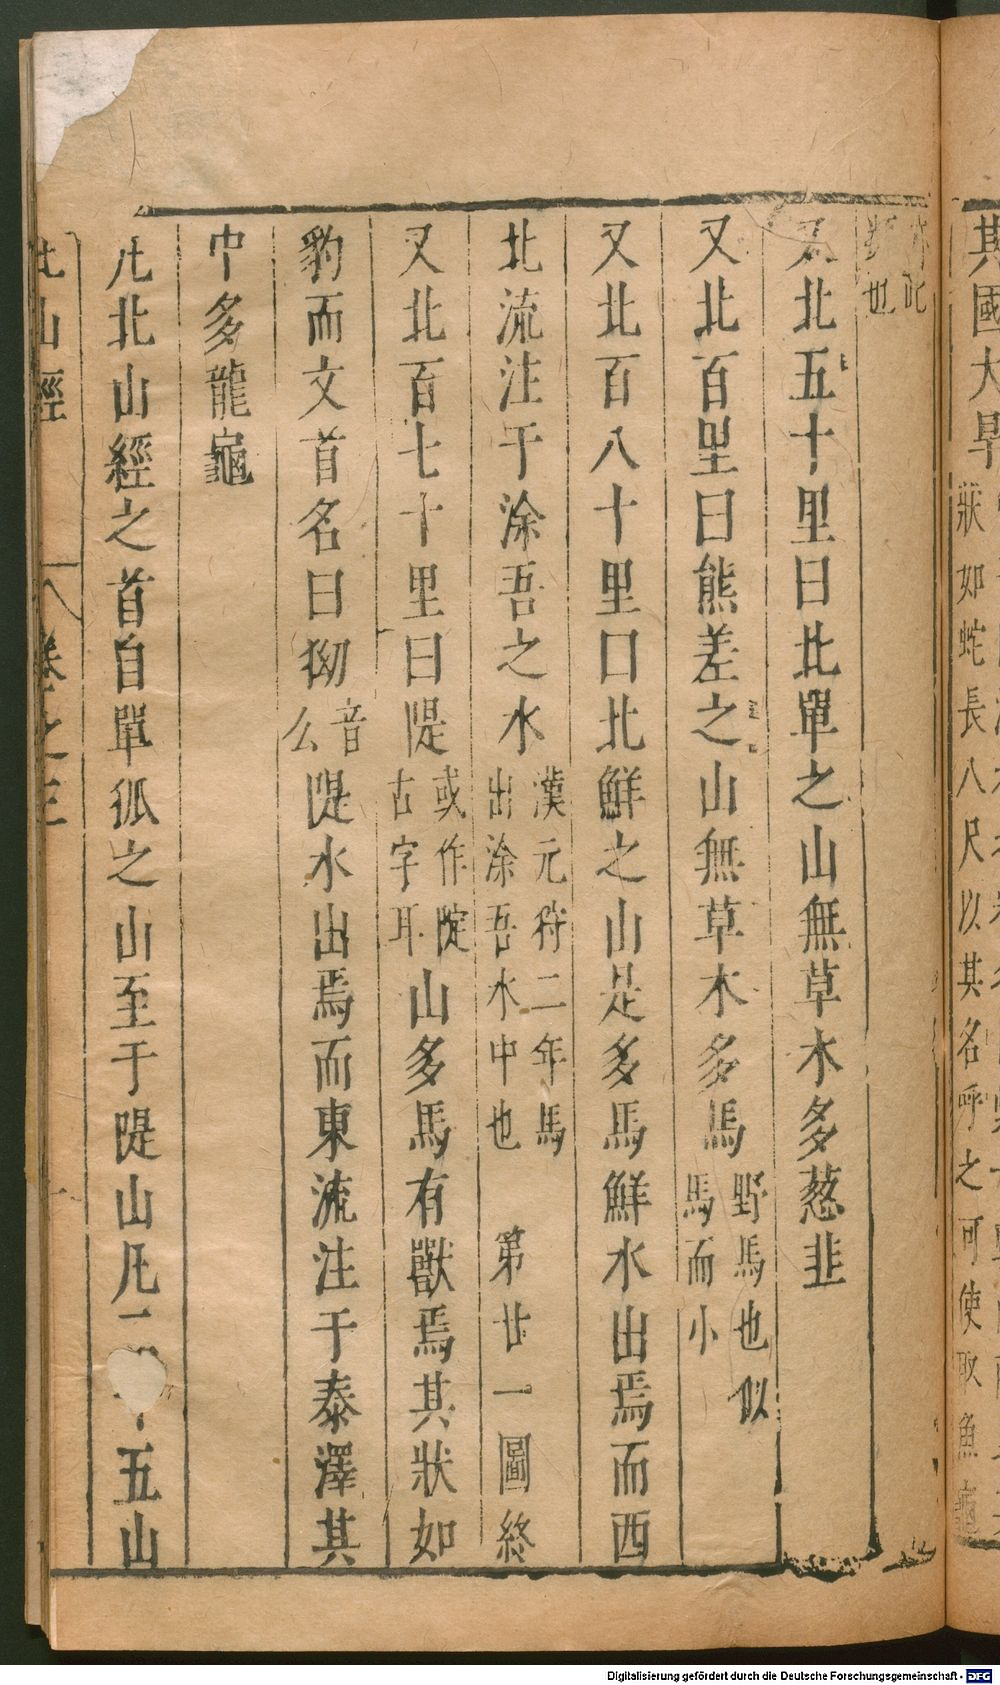 其國大旱
狀如蛇長八尺以其名呼之可使取魚龜
亦此
類也
又北五十里曰北單之山無草木多葱韭
又北百里曰熊差之山無草木多馬野馬也似馬而小
又北百八十里口北鮮之山是多馬鮮水出焉而西
北流注于涂吾之水漢元狩二年馬出涂吾水中也 第廿一圖終
又北百七十里曰隄或作隄古字耳山多馬有獸焉其狀如
豹而文首名曰㺃音么隄水出焉而東流注于泰澤其
中多龍龜
凡北山經之首自單狐之山至于隄山凡二十五山
北山經 卷之三
Digitalisierung gefördert durch die Deutsche Forschungsgemeinschaft - DFG